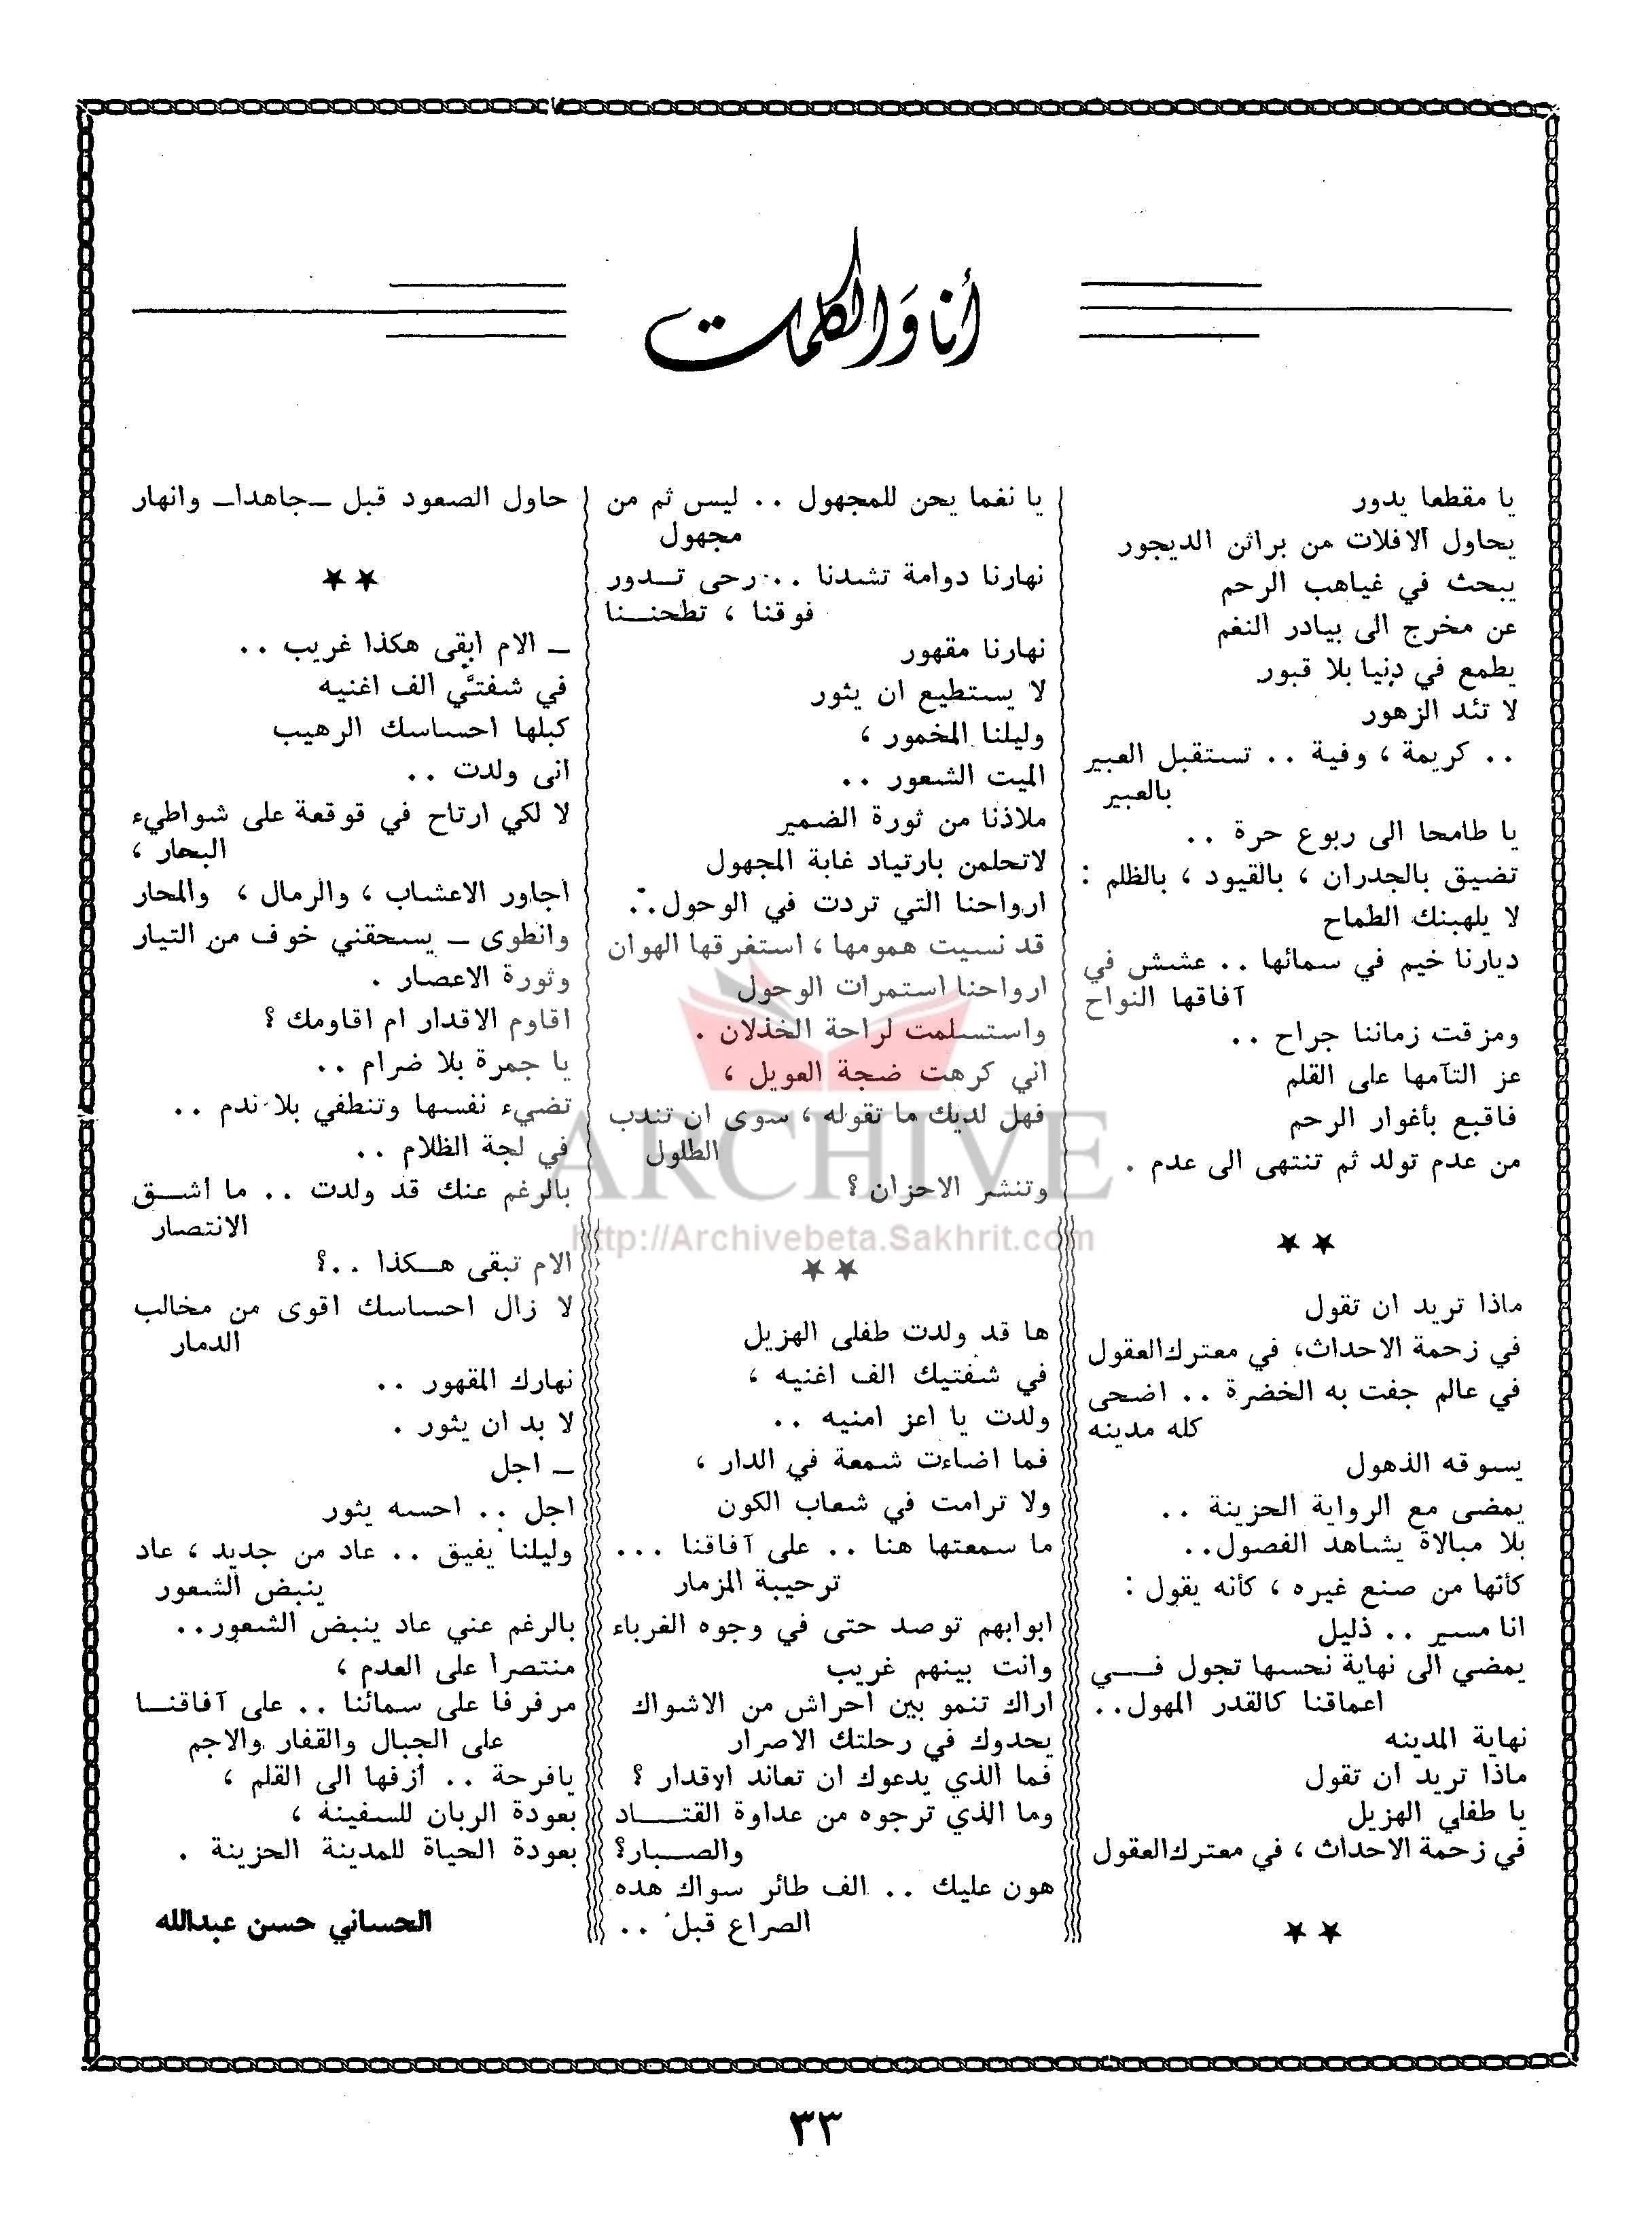 أنا وَالكلمات
يا مقطعا يدور
يحاول الافلات من براثن الديجور
يبحث في غياهب الرحم
عن مخرج الى بيادر النغم
يطمع في دنيا بلا قبور
لا تئد الزهور
. . كريمة ، وفية . . تستقبل العبير
بالعبير
يا طامحا الى ربوع حرة . .
تضيق بالجدران ، بالقيود ، بالظلم :
لا يلهبنك الطماح
ديارنا خيم في سمائها . . عشش في
آفاقها النواح
ومزقت زماننا جراح . .
عز التآمها على القلم
فاقبع بأغوار الرحم
من عدم تولد ثم تنتهى الى عدم .
★ ★
ماذا تريد ان تقول
في زحمة الاحداث، في معترك العقول
في عالم جفت به الخضرة . . اضحى
كله مدينه
يسوقه الذهول
يمضى مع الرواية الحزينة . .
بلا مبالاة يشاهد الفصول . .
كأنها من صنع غيره ، كأنه يقول :
انا مسير . . ذليل
يمضي الى نهاية نحسها تجول فــي
اعماقنا كالقدر المهول . .
نهاية المدينه
ماذا تريد ان تقول
يا طفلي الهزيل
في زحمة الاحداث ، في معترك العقول
★ ★
يا نغما يحن للمجهول . . ليس ثم من
مجهول
نهارنا دوامة تشدنا . . رحى تــدور
فوقنا ، تطحنــنا
نهارنا مقهور
لا يستطيع ان يثور
وليلنا المخمور ،
الميت الشعور . .
ملاذنا من ثورة الضمير
لاتحلمن بارتياد غابة المجهول
ارواحنا التي تردت في الوحول . .
قد نسيت همومها ، استغرقها الهوان
ارواحنا استمرات الوحول
واستسلمت لراحة الخذلان .
اني كرهت ضجة العويل ،
فهل لديك ما تقوله ، سوى ان تندب
الطلول
وتنشر الاحزان ؟
★ ★
ها قد ولدت طفلى الهزيل
في شفتيك الف اغنيه ،
ولدت يا اعز امنيه . .
فما اضاءت شمعة في الدار ،
ولا ترامت في شعاب الكون
ما سمعتها هنا . . على آفاقنا . . .
ترحيبة المزمار
ابوابهم توصد حتى في وجوه الغرباء
وانت بينهم غريب
اراك تنمو بين احراش من الاشواك
يحدوك في رحلتك الاصرار
فما الذي يدعوك ان تعاند الاقدار ؟
وما الذي ترجوه من عداوة القتــاد
والصــبار؟
هون عليك . . الف طائر سواك هده
الصراع قبل . .
حاول الصعود قبل ــ جاهدا ــ وانهار
★ ★
ــ الام ابقى هكذا غريب . .
في شفتيَّ الف اغنيه
كبلها احساسك الرهيب
انى ولدت . .
لا لكي ارتاح في قوقعة على شواطيء
البحار ،
اجاور الاعشاب ، والرمال ، والمحار
وانطوى ــ يسحقني خوف من التيار
وثورة الاعصار .
اقاوم الاقدار ام اقاومك ؟
يا جمرة بلا ضرام . .
تضيء نفسها وتنطفي بلا ندم . .
في لجة الظلام . .
بالرغم عنك قد ولدت . . ما اشــق
الانتصار
الام تبقى هــكذا . . ؟
لا زال احساسك اقوى من مخالب
الدمار
نهارك المقهور . .
لا بد ان يثور .
ــ اجل
اجل . . احسه يثور
وليلنا يفيق . . عاد من جديد ، عاد
ينبض الشعور
بالرغم عني عاد ينبض الشعور . .
منتصرا على العدم ،
مرفرفا على سمائنا . . على آفاقنــا
على الجبال والقفار والاجم
يافرحة . . ازفها الى القلم ،
بعودة الربان للسفينة ،
بعودة الحياة للمدينة الحزينة .
الحساني حسن عبدالله
ARCHIVE
http://Archivebeta.Sakhrit.com
٣٣